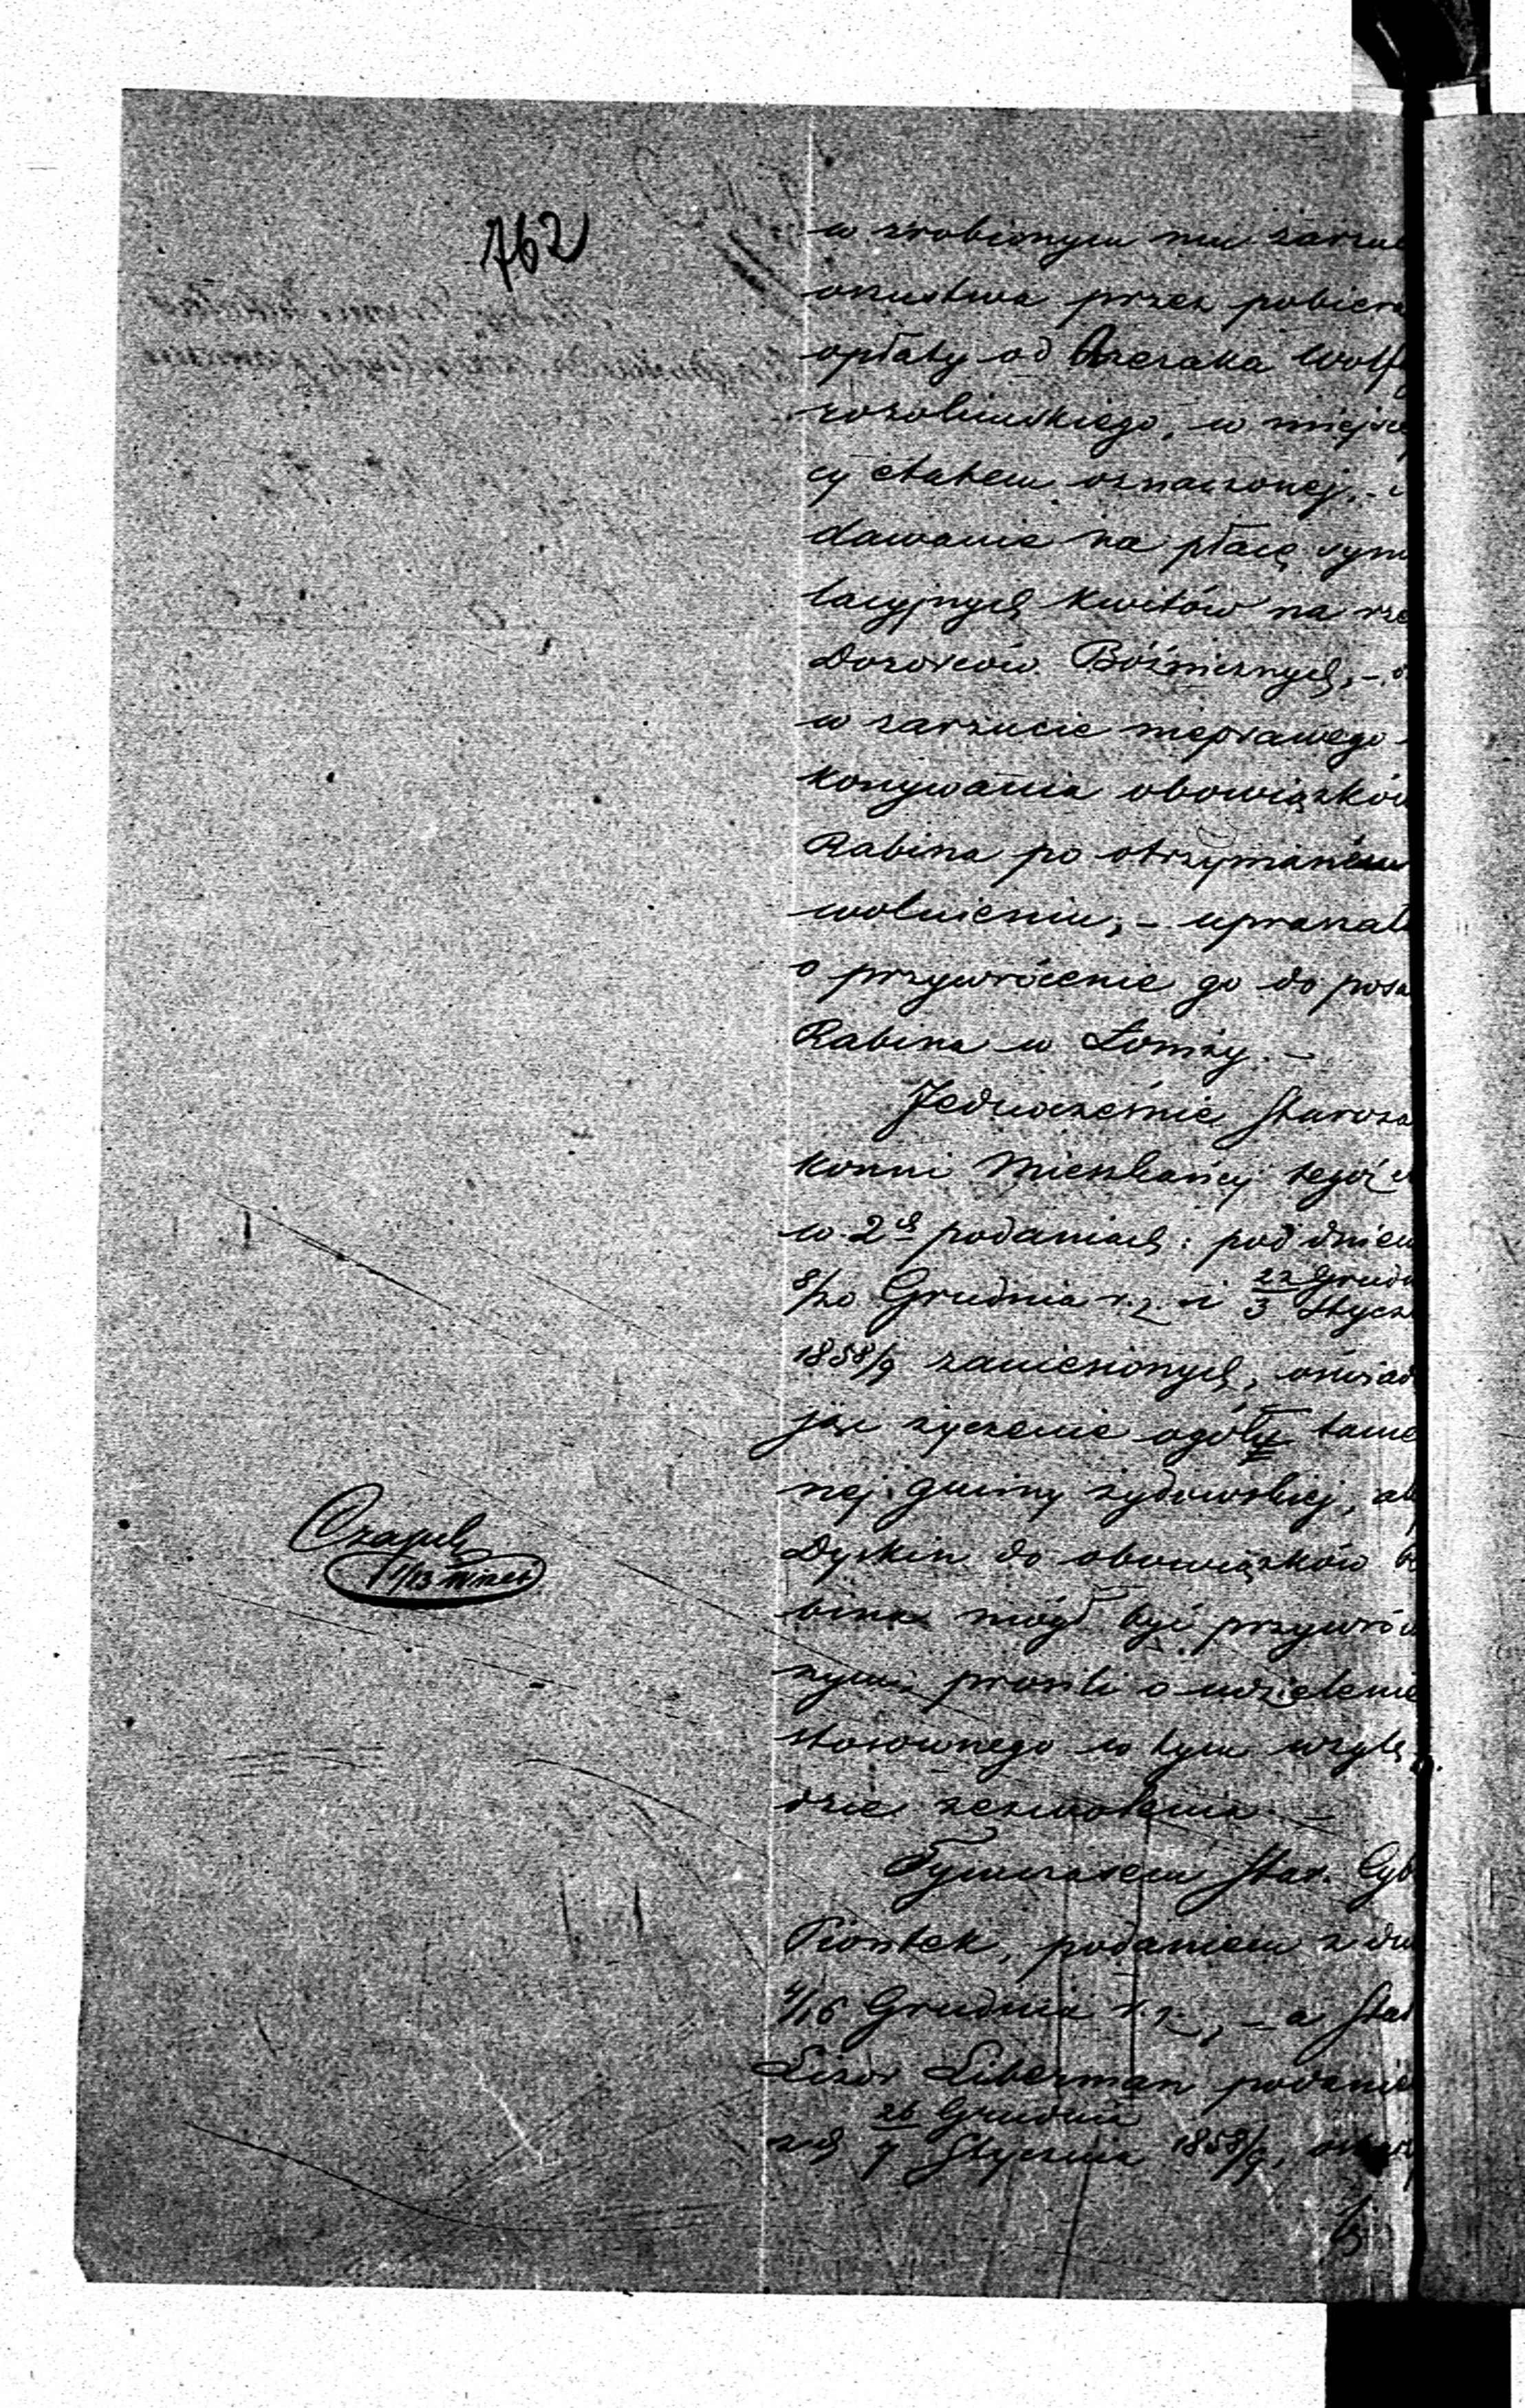 762
w zrobionym mu zarzu
oszustwa przez pobiera
opłaty od Wolf
w miejsc
cy etatem oznaczonej, - i
dawanie na płacę sym
lacyjnych kwitów na rze
Dozorców Bóżniczych, -
w zarzucie nieprawego
konywania obowiązków
Rabina po otrzymaniu
wolnieniu; - upraszał
o przywrócenie go do posa
Rabina w Łomży. -
Jednocześnie Staroza
konni Mieszkańcy tegoż
w 2ch podaniach: pod dniem
8/20 Grudnia r. z. i 22 Grud
3 Stycz
1858/9 zaniesionych, oświad
jąc życzenie ogółu tame
nej gminy żydowskiej, ab
Dyskin do obowiązków
bina mógł być przywró
nym prosili o udzielenie
stosownego w tym wzglę
dzie zezwolenia. -
Tymczasem Star.
Piontek, podaniem z dn
4/16 Grudnia r. z., - a Star
Lizor Liberman podanie
26 Grudnia
7 Stycznia 1858/9,